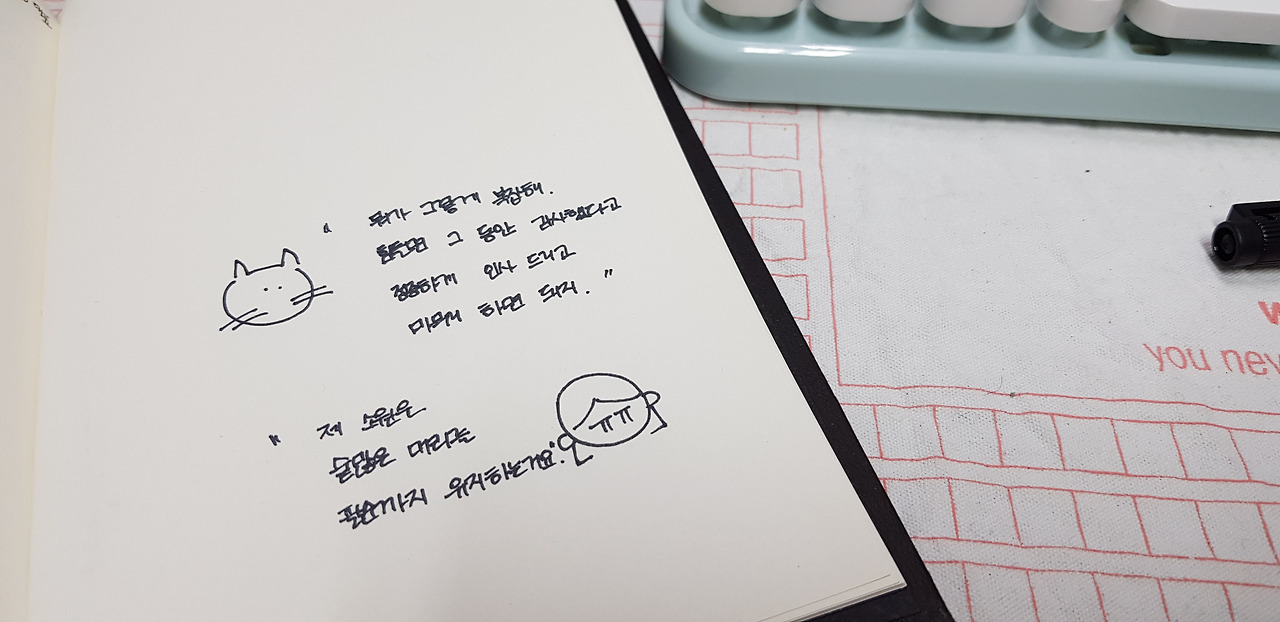 " 뭐가 그렇게 복잡해.
힘들면 그 동안 감사했다고
정중하게 인사 드리고
마무리 하면 되지. "
" 제 소원은
숱많은 머리를
팔순까지 유지하는거요."
ㅠㅠ
you nev